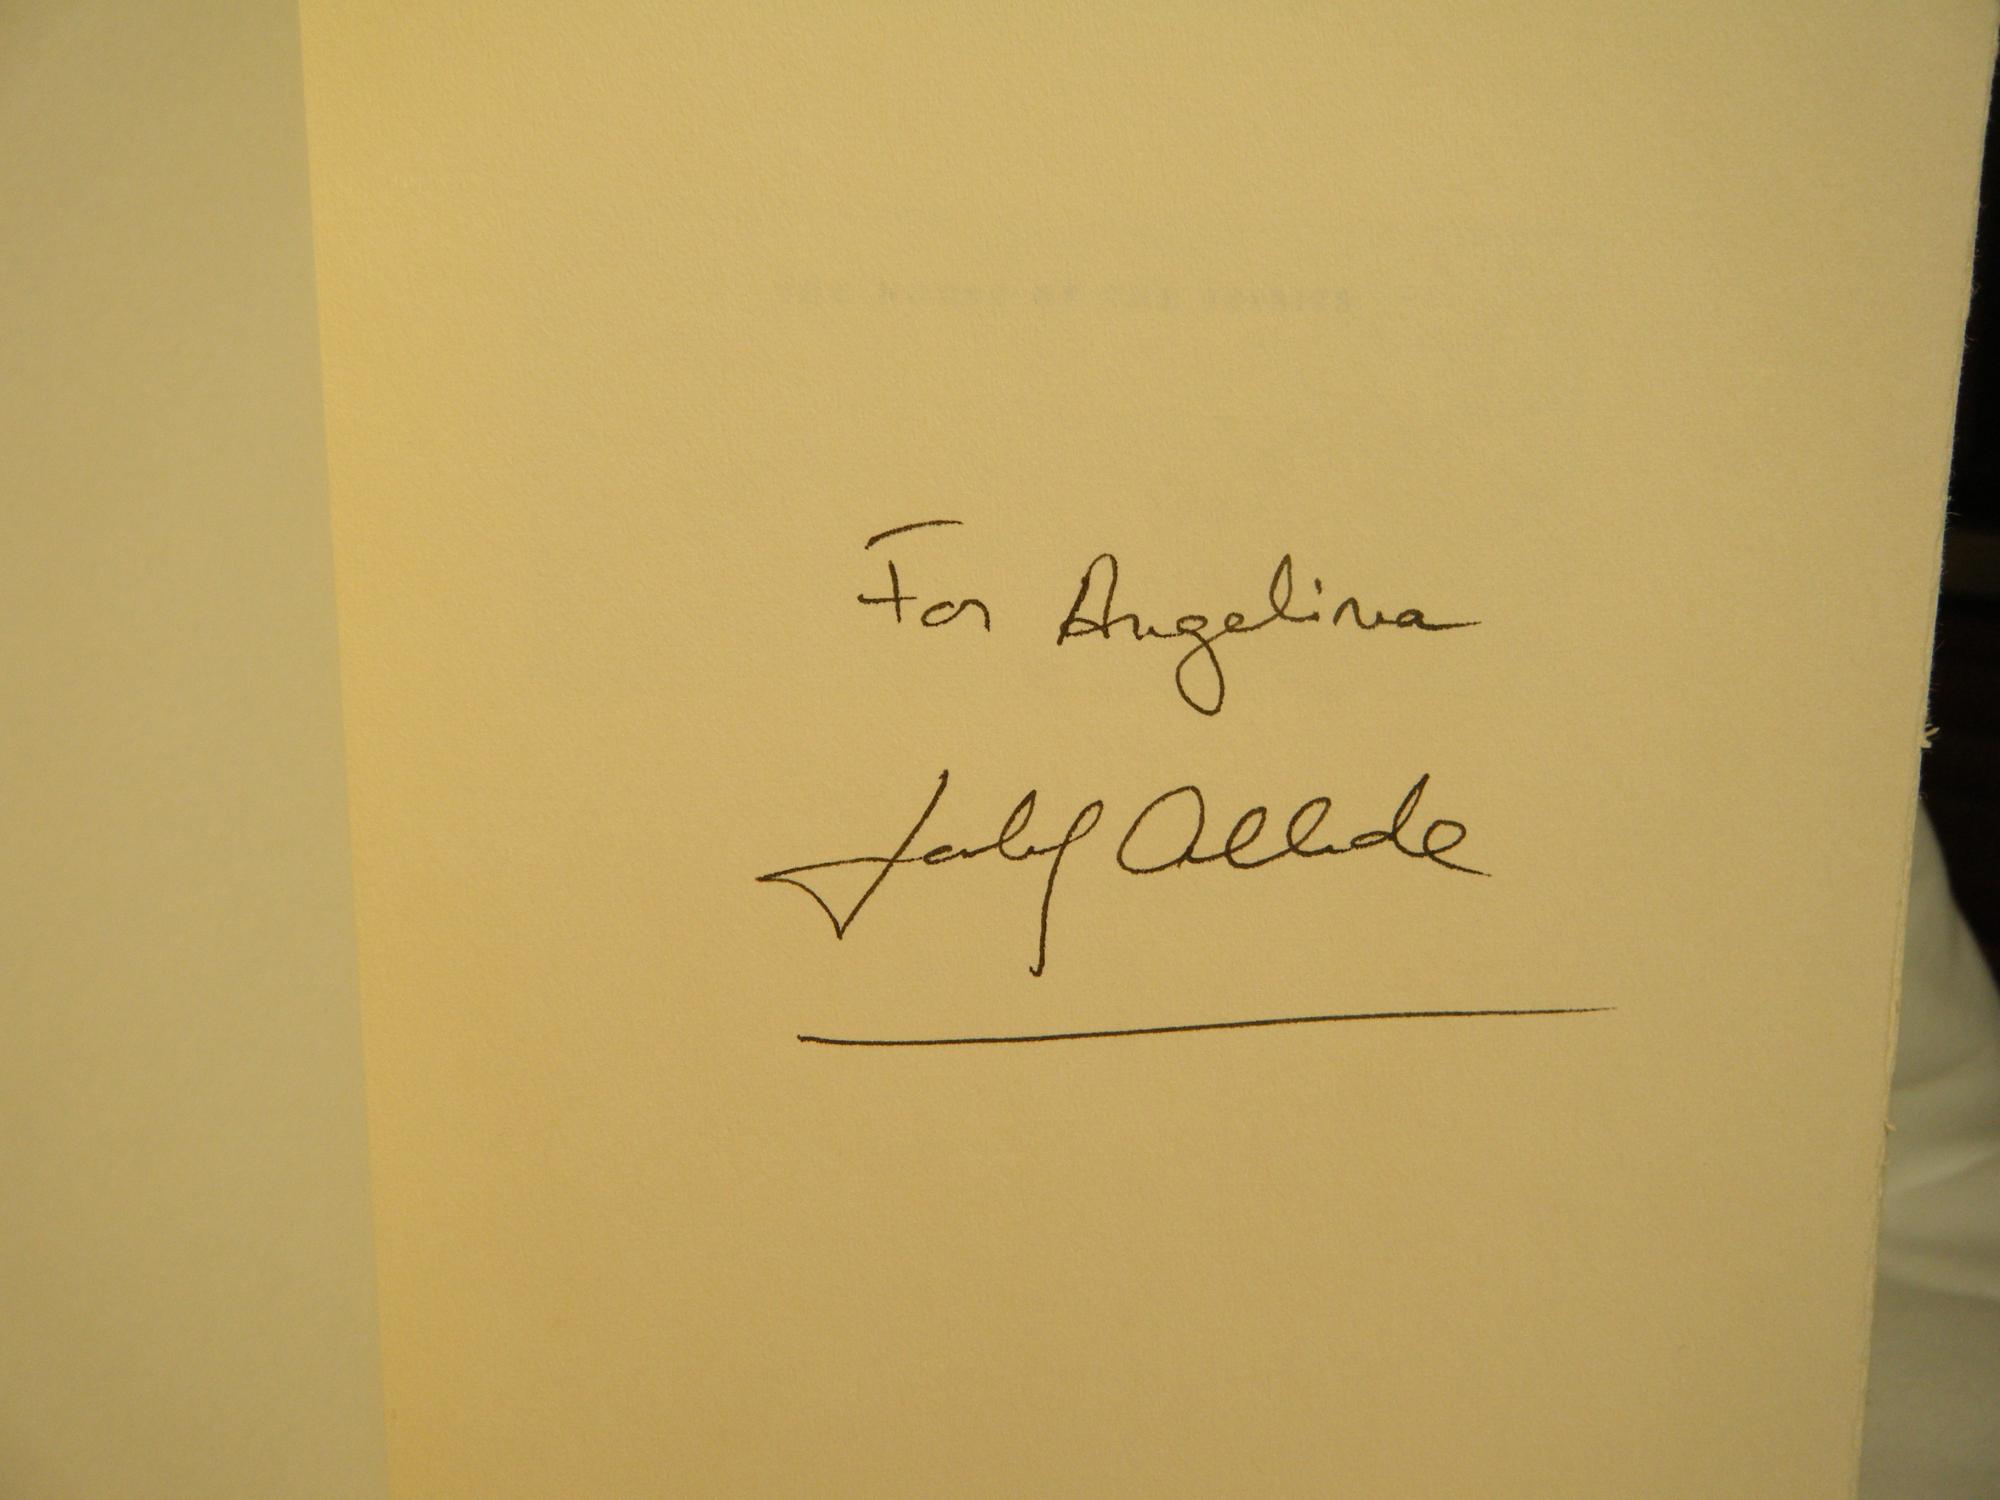 THE HOUSE OF THE SPIRITS
For Angelina
Isabel Allende